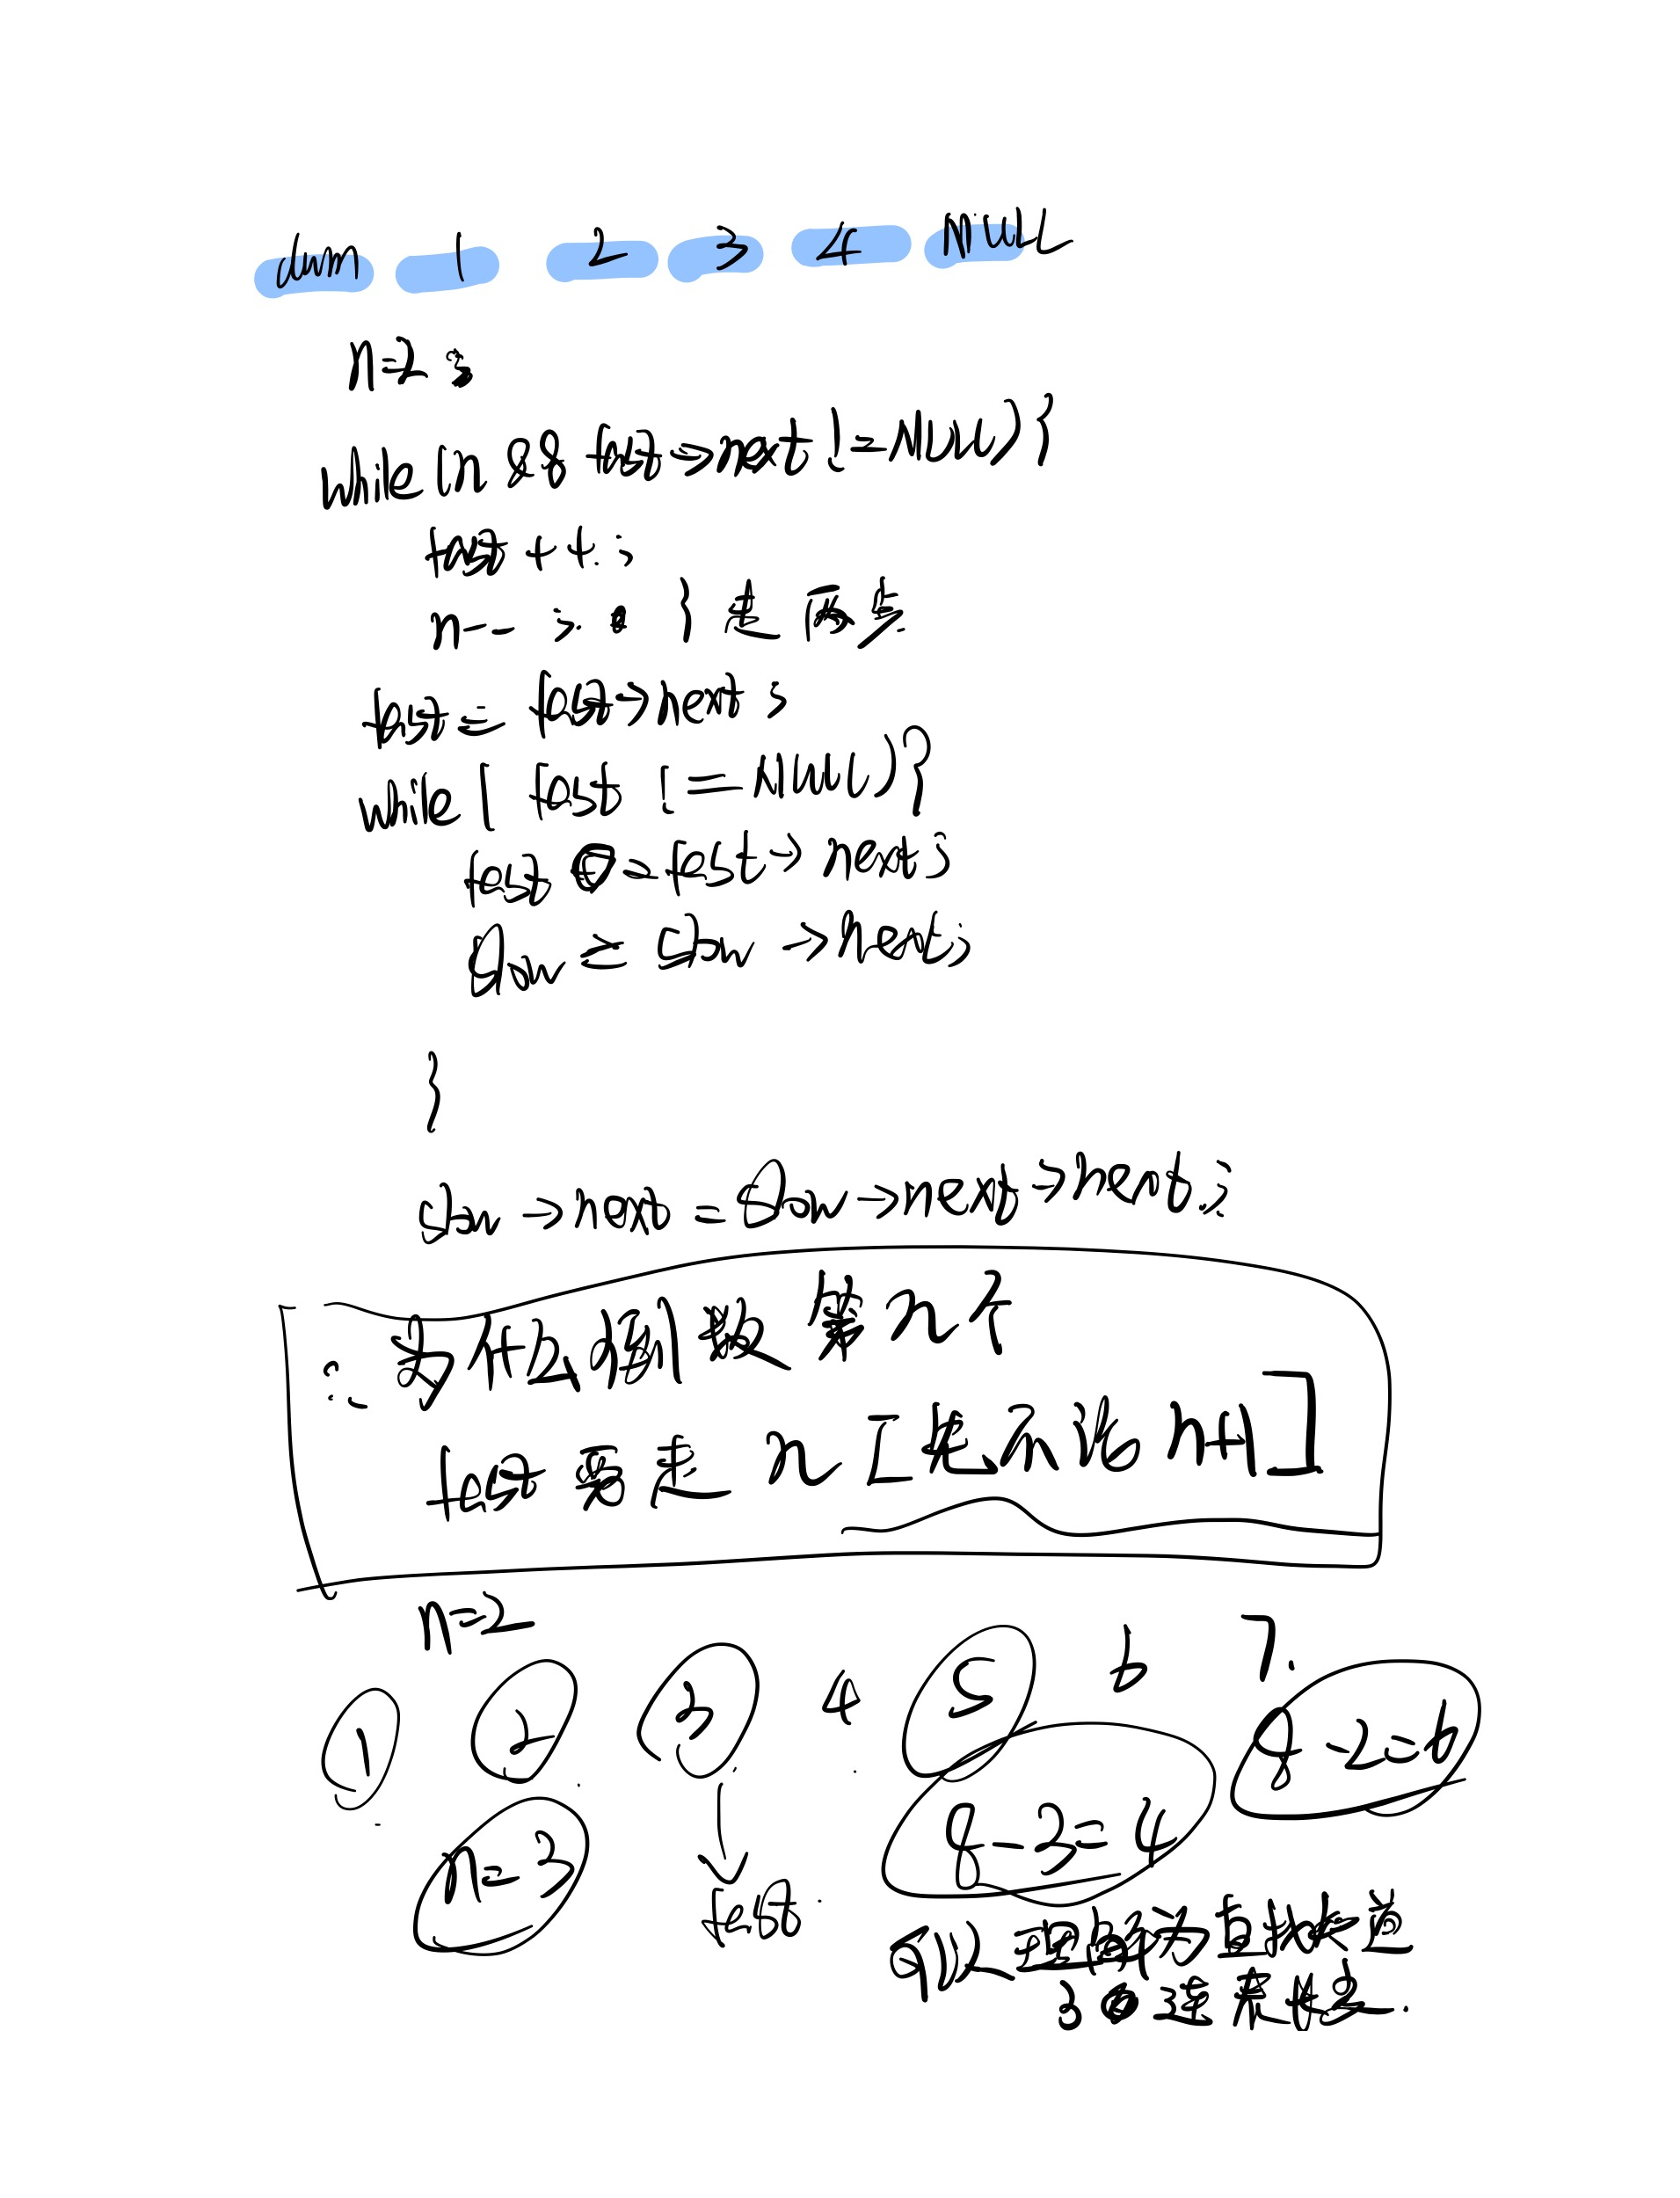 dum 1 2 3 4 NULL
n=2;
while(n && fast->next != NULL){
fast++;
n--; } 走两步.
fast = fast->next;
while( fast != NULL){
fast = fast->next;
slow = slow->next;
}
slow->next = slow->next->next;
∵ 为什么倒数第n个
fast 要走 n [走不说 n+1]
n=2
1 2 3 4 5 6 7.
8-2=6
n=3 8-3=4
fast.
可以理解为直接快速
3 连表长度.